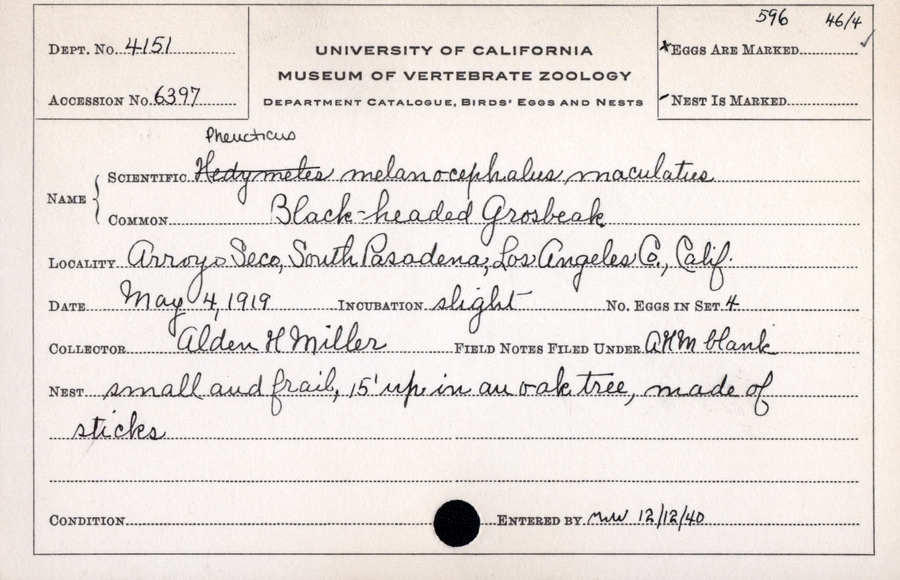 596 46/4
DEPT. No. 4151
UNIVERSITY OF CALIFORNIA
x EGGS ARE MARKED ✓
MUSEUM OF VERTEBRATE ZOOLOGY
ACCESSION No. 6397
DEPARTMENT CATALOGUE, BIRDS' EGGS AND NESTS
- NEST IS MARKED
Pheucticus
NAME
SCIENTIFIC Hedymeles melanocephalus maculatus
COMMON Black-headed Grosbeak
LOCALITY Arroyo Seco, South Pasadena, Los Angeles Co., Calif.
DATE May 4, 1919 INCUBATION slight No. EGGS IN SET 4
COLLECTOR Alden H Miller FIELD NOTES FILED UNDER AHM blank
NEST small and frail, 15' up in an oak tree, made of
sticks
CONDITION ENTERED BY mw 12/12/40